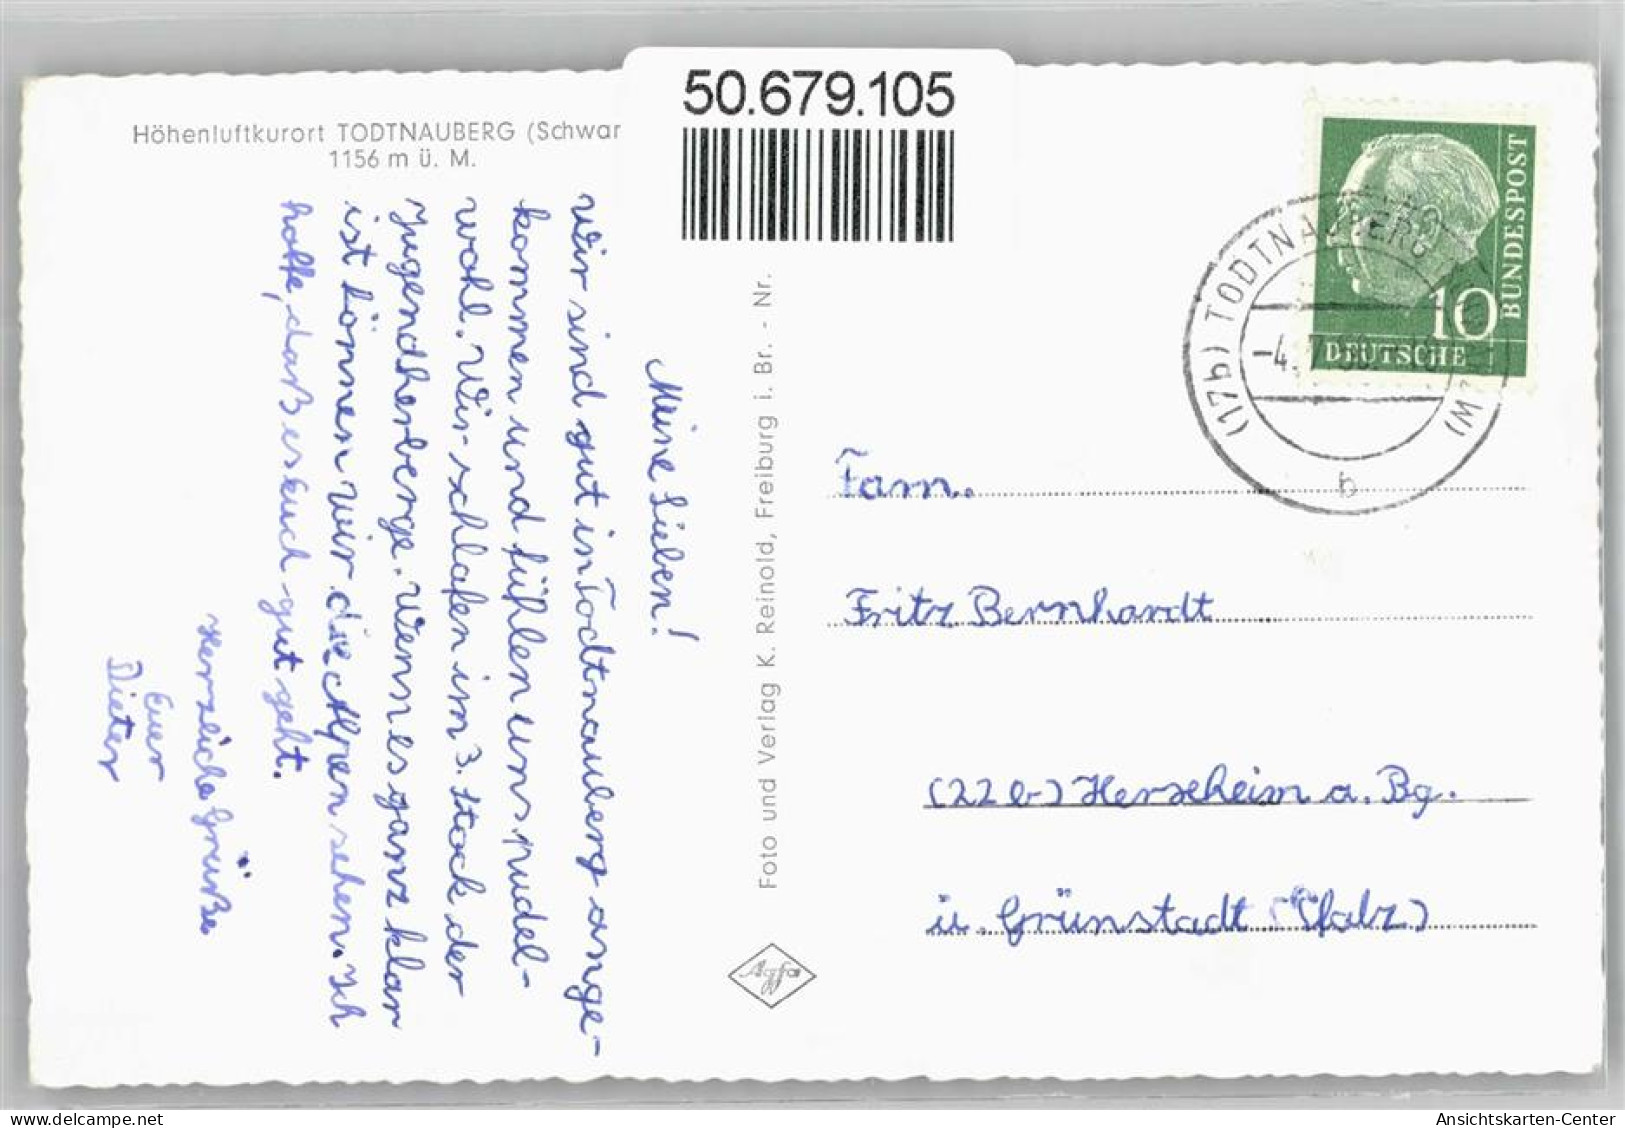 50.679.105
Höhenluftkurort TODTNAUBERG (Schwar
1156 m ü. M.
Meine Lieben!
Wir sind gut in Todtnauberg ange-
kommen und fühlen uns pudel-
wohl. Wir schlafen im 3. Stock der
Jugendherberge. Wenn es ganz klar
ist können wir die Alpen sehen. Ich
hoffe, daß es Euch gut geht.
Herzliche Grüße
Euer
Dieter
Foto und Verlag K. Reinold, Freiburg i. Br. - Nr.
Agfa
DEUTSCHE
BUNDESPOST
10
(17b) TODTNAUBERG
-4.
W)
b
Fam.
Fritz Bernhardt
(22b) Herxheim a. Bg.
ü. Grünstadt (Pfalz)
delcampe.net
Ansichtskarten-Center